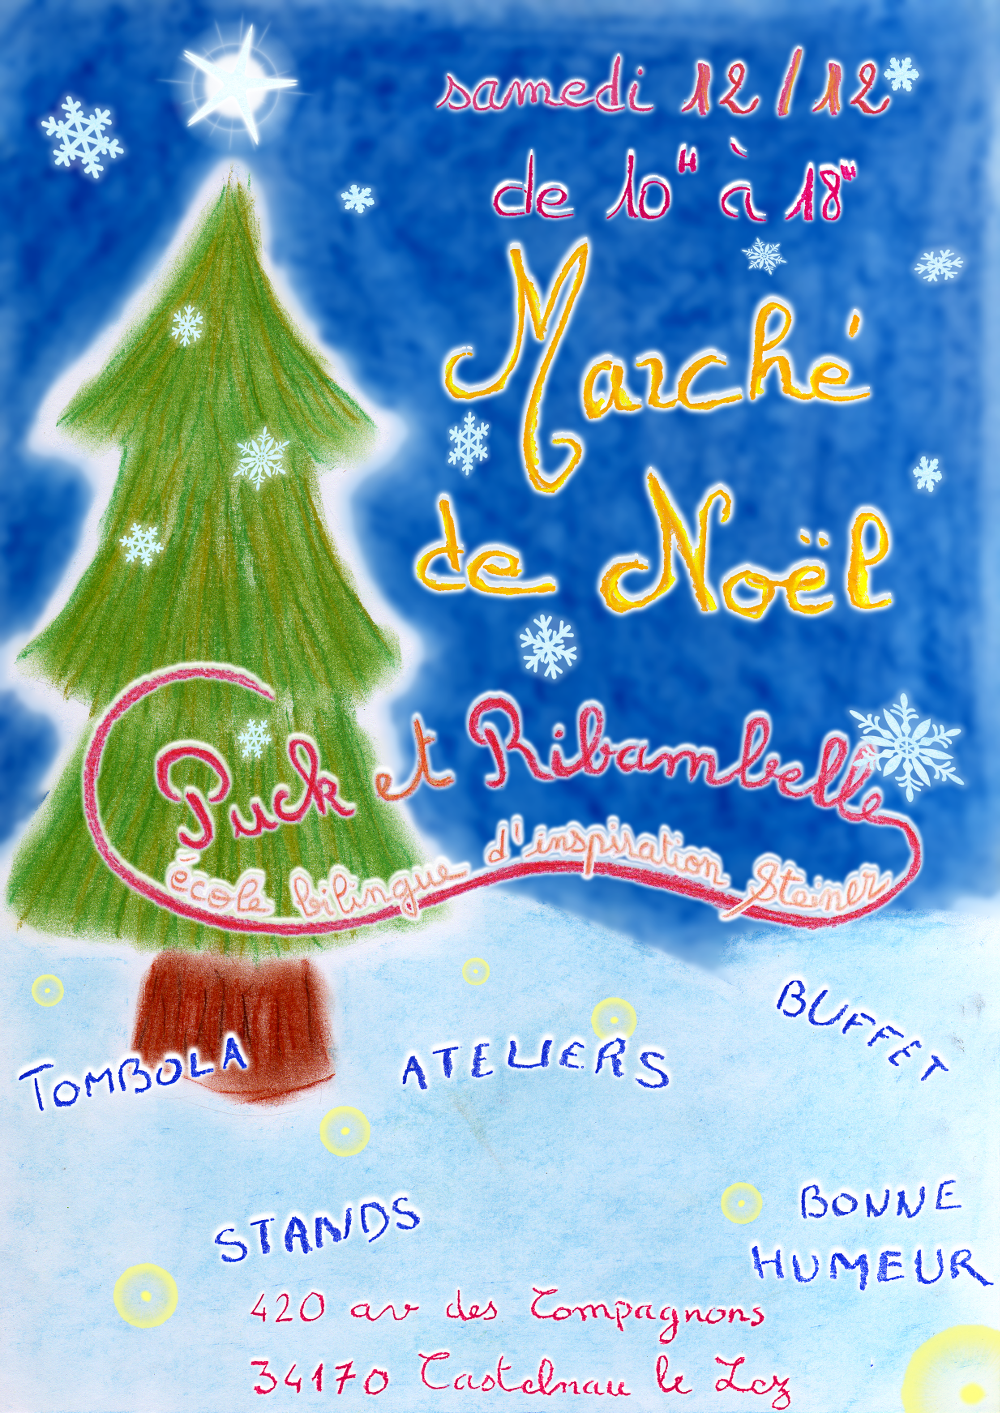 samedi 12/12
de 10H à 18H
Marché
de Noël
Puck et Ribambelle
école bilingue d'inspiration Steiner
BUFFET
TOMBOLA
ATELIERS
BONNE
HUMEUR
STANDS
420 av des Compagnons
34170 Castelnau le Lez